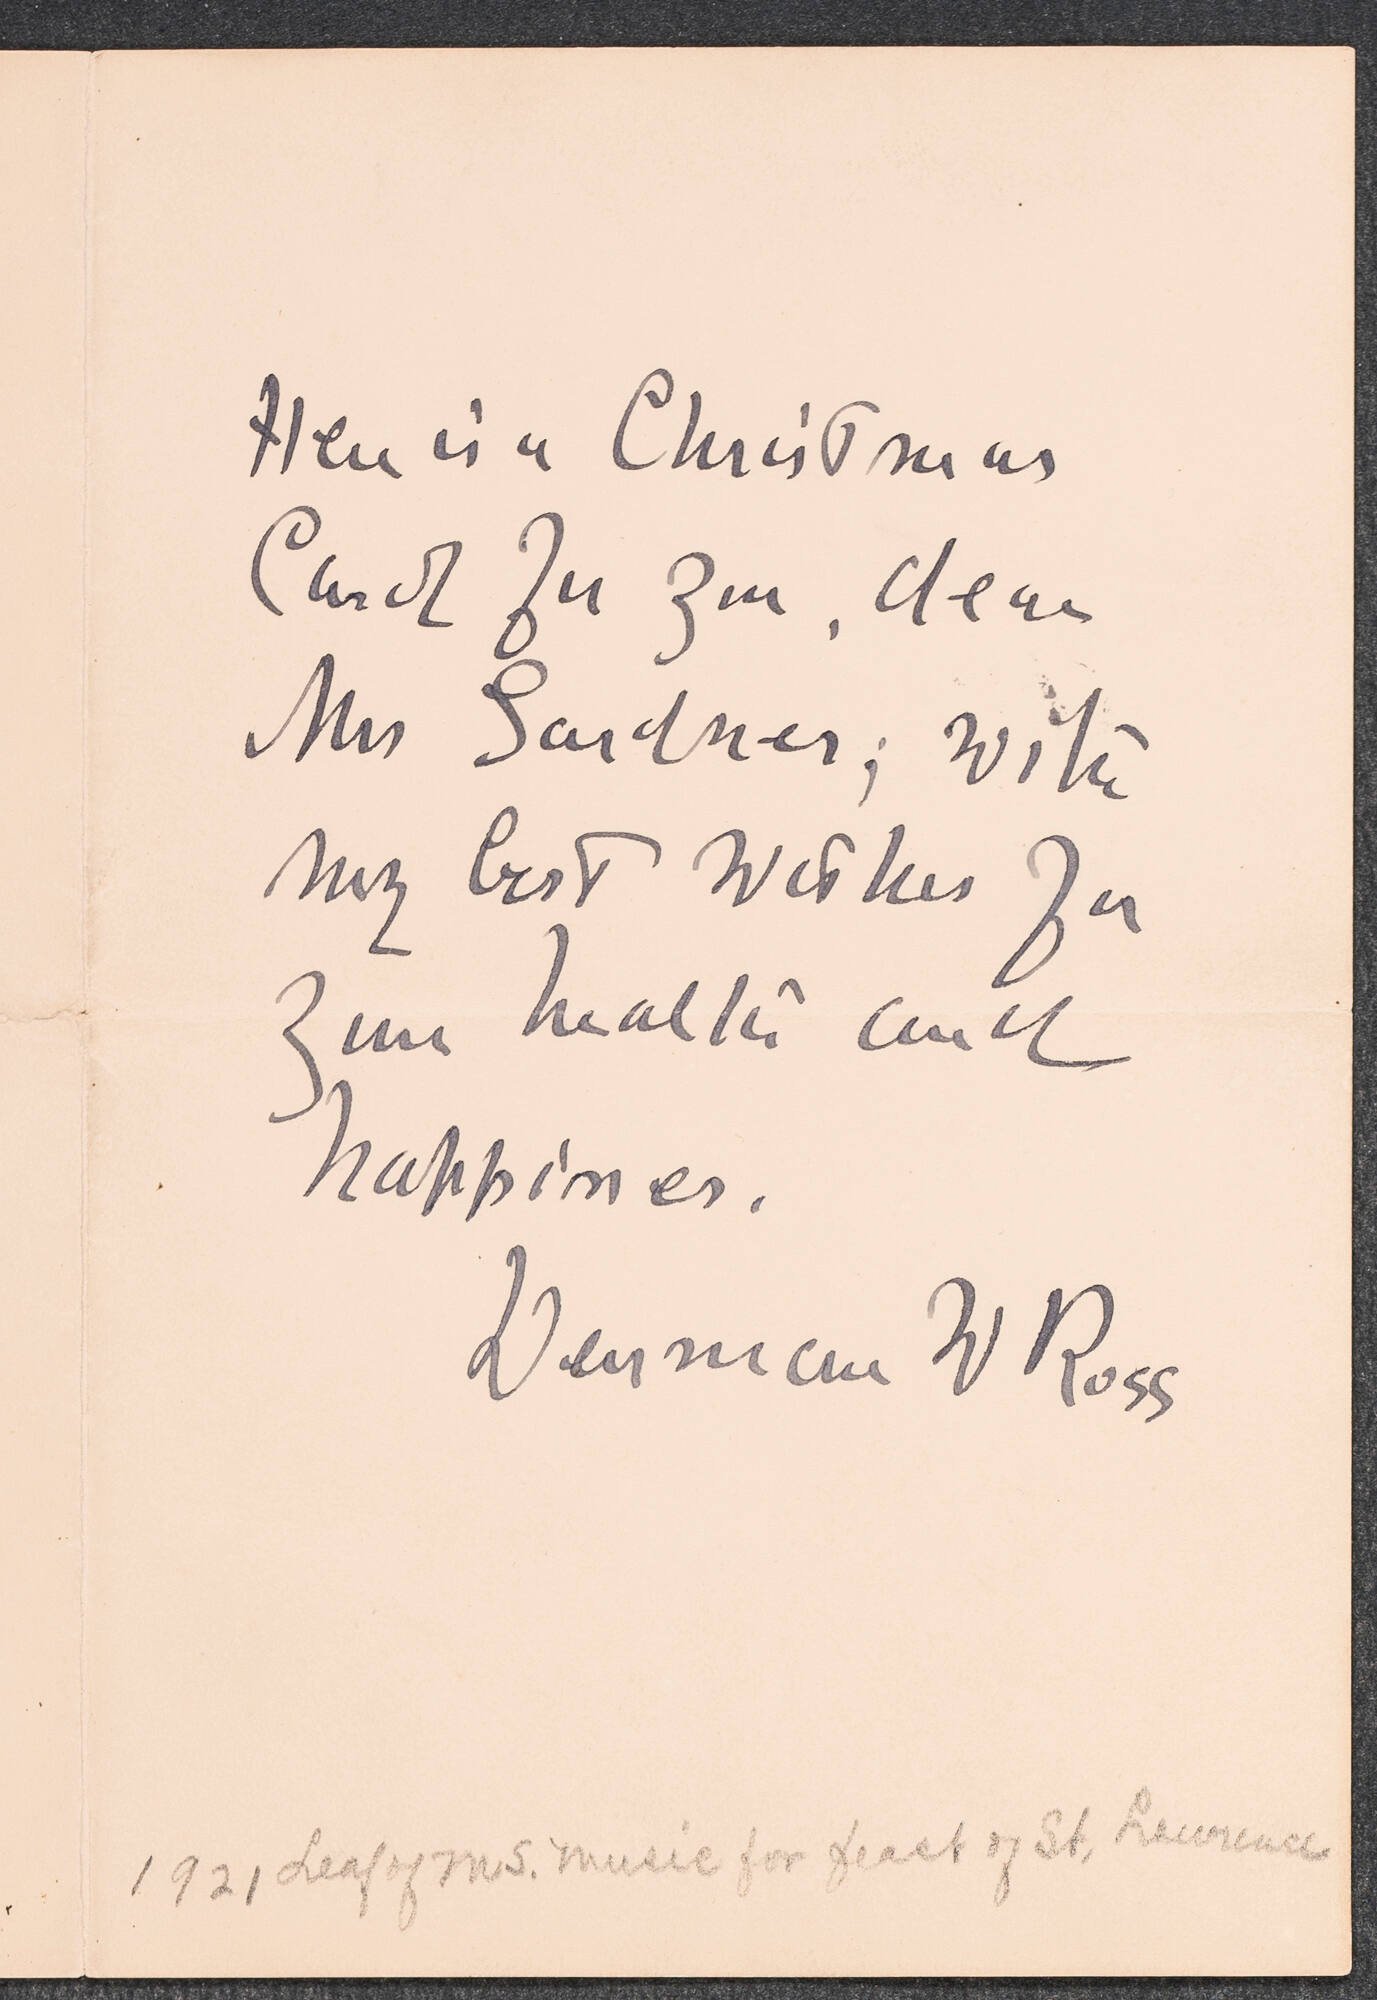 Here is a Christmas
Card for you, dear
Mrs Gardner; with
my best wishes for
your health and
happiness.
Denman W Ross
1921 Leaf of MS. Music for feast of St. Lawrence